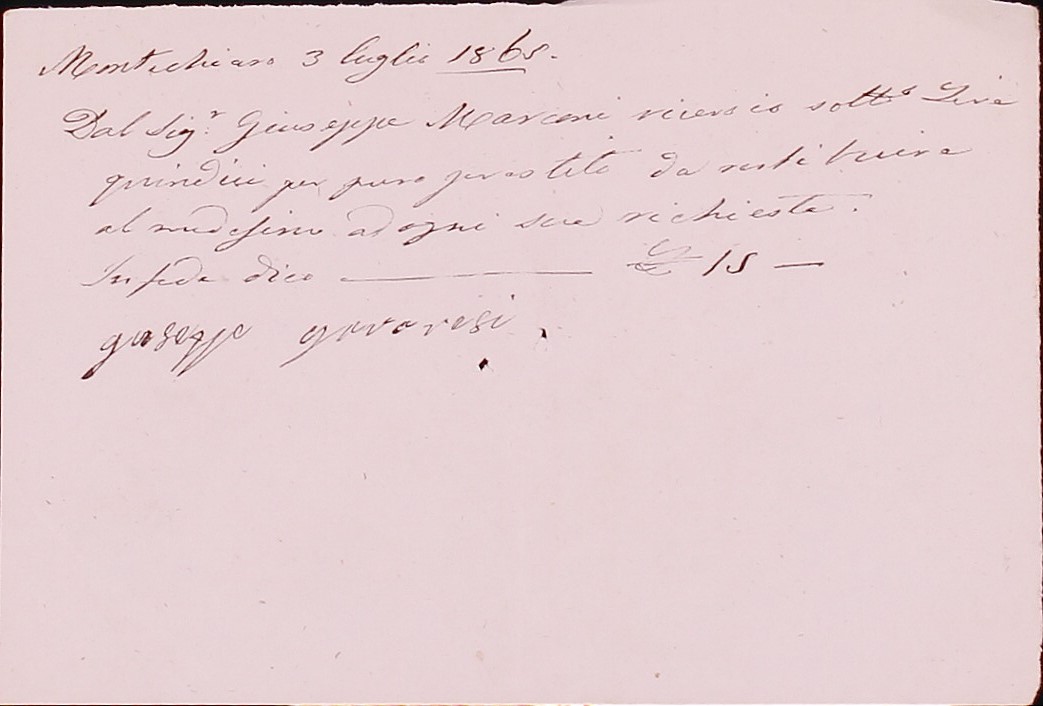 Montechiaro 3 luglio 1865.
Dal Sig.r Giuseppe Marconi ricevo io sotto Lire
quindici per puro prestito da restituire
al medesimo ad ogni sua richiesta.
In fede dico ——— £ 15 —
giuseppe govoresi.